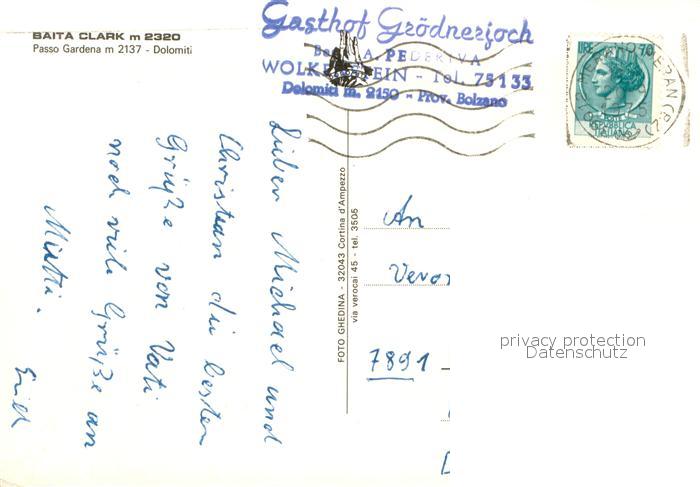 BAITA CLARK m 2320
Passo Gardena m 2137 - Dolomiti
Gasthof Grödnerjoch
A. PEDERIVA
WOLKENSTEIN - Tel. 75133
Dolomiti m. 2150 - Prov. Bolzano
LIRE 70
REPUBBLICA
ITALIANA
Lieber Michael und
Christian die besten
Grüße von Vati
noch viele Grüße an
Mutti.
FOTO GHEDINA - 32043 Cortina d'Ampezzo
via verocai 45 - tel. 3505
An
7891
privacy protection
Datenschutz